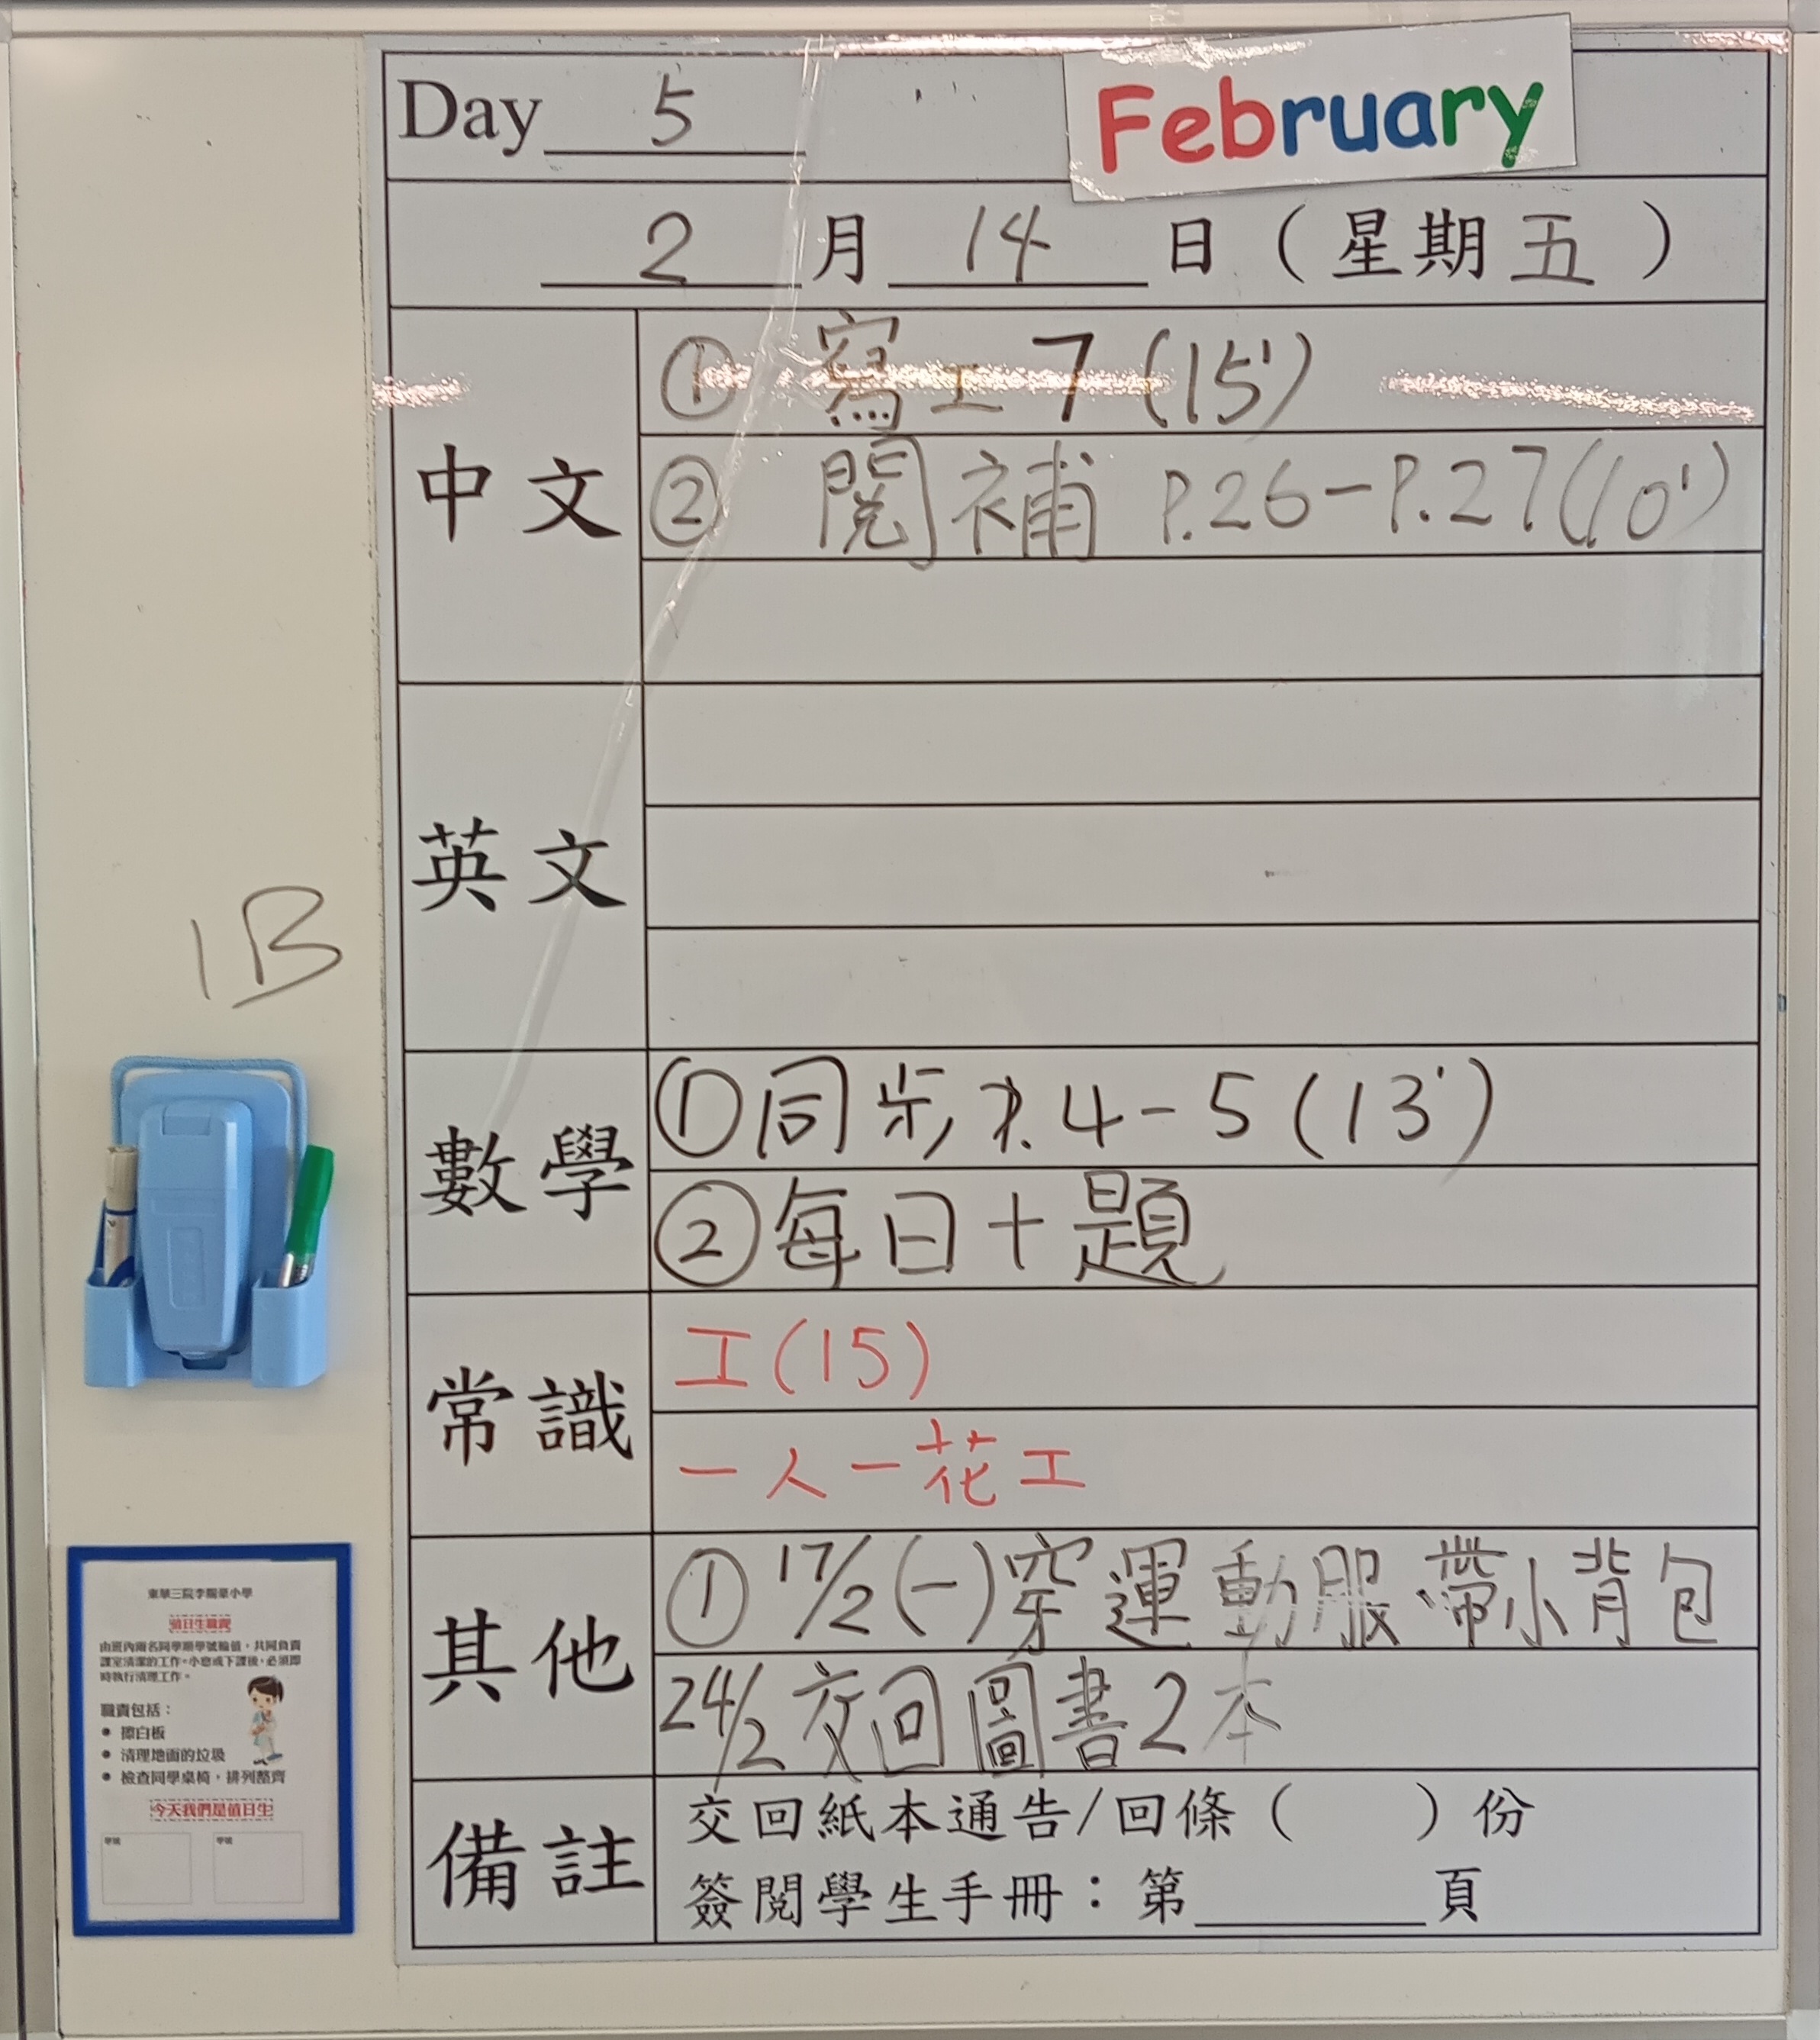 Day 5
February
2 月 14 日 ( 星期 五 )
中文
① 寫工 7 (15')
② 閱補 P.26-P.27(10')
英文
1B
數學
① 同步 P.4-5 (13')
② 每日十題
常識
工(15)
一人一花工
其他
① 17/2 (一) 穿運動服 帶小背包
24/2 交回圖書2本
備註
交回紙本通告/回條 ( ) 份
簽閱學生手冊:第____頁
值日生職責
由班內兩名同學順學號輪值,共同負責
課室清潔的工作。小息或下課後,必須即
時執行清理工作。
職責包括:
● 擦白板
● 清理地面的垃圾
● 檢查同學桌椅,排列整齊
今天我們是值日生
學號 學號